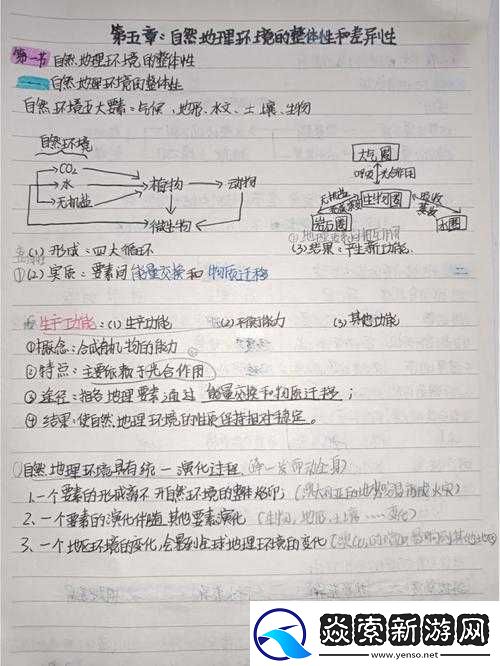 第五章：自然地理环境的整体性和差异性
第一节 自然地理环境的整体性
一 自然地理环境的整体性
自然环境五大要素：气候、地形、水文、土壤、生物
自然环境
CO₂
水
无机盐
植物
动物
微生物
大气圈
呼吸 光合作用
无机盐
生物圈
吸收
蒸腾
岩石圈
水圈
(1) 形成：四大循环
(3) 结果：产生新功能.
①(2) 实质：要素间能量交换和物质迁移
生产功能：(1) 生产功能 (2) 平衡能力 (3) 其他功能
①概念：合成有机物的能力
②特点：主要依赖于光合作用
③途径：相各地理要素通过能量交换和物质迁移；
④结果：使自然地理环境的性质保持相对稳定。
自然地理环境具有统一演化过程. (牵一发而动全身)
1.一个要素的形成离不开自然环境的整体烙印；
2、一个要素的演化伴随其他要素演化 (生物、地形、土壤……变化)
3、一个地区环境的变化,会影响到全球地理环境的变化
焱索新游网
www.yenso.net